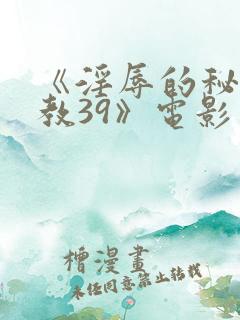 《淫辱的秘
教39》电影
檜漫畫
未经同意禁止转载